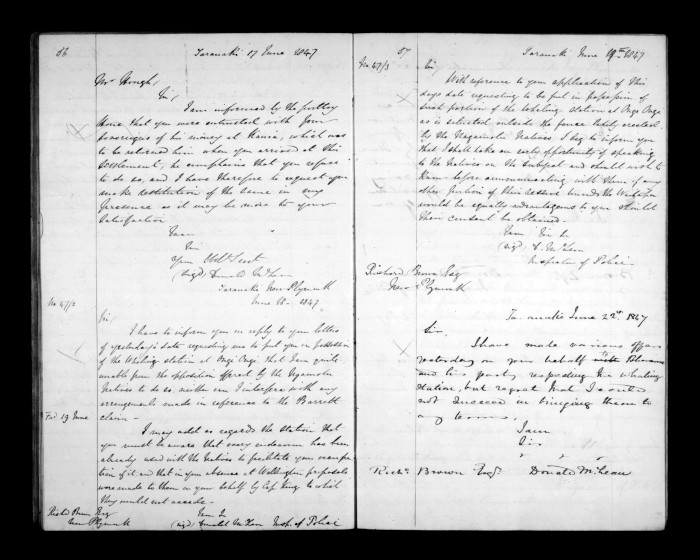 56
Taranaki 17 June 1847
Mr Hough,
Sir,
I am informed by the
that you were entrusted with four
sovereigns of his money at Kawia, which was
to be returned him when you arrived at this
Settlement; he complains that you refuse
to do so, and I have therefore to request you
make restitution of the same in my
presence as it may be more to your
Satisfaction
I am
Sir
Your Obt Servt
(Sigd) Donald McLean
Taranaki New Plymouth
June 18 1847
No 47/2
Sir,
I have to inform you in reply to your letters
of yesterday's date requesting me to put you in possession
of the Whaling station at Ongi Ongi that I am quite
unable from the opposition offered by the Ngamotu
Natives to do so, neither can I interfere with any
arrangements made in reference to the Barrett
claim -
Fad 19 June
I may add as regards the station that
you must be aware that every endeavour has been
already used with the Natives to facilitate your occupa-
tion of it and that in your absence at Wellington proposals
were made to them on your behalf by Cap King to which
they would not accede -
Richd Brown Esq
New Plymouth
I am Sir
(sigd) Donald McLean Insp. of Police
57
Taranaki June 19th 1847
No 47/3
Sir,
With reference to your application of this
days date requesting to be put in possession of
such portion of the whaling station at Ongi Ongi
as is situated outside the fence lately erected
by the Ngamotu Natives I beg to inform you
that I shall take an early opportunity of speaking
to the Natives on the subject and should wish to
know before communicating with them if any
other portion of their reserve towards the Waitara
would be equally advantageous to you should
their consent be obtained -
I am Sir &c
(sigd) D. McLean
Inspector of Police
Richard Brown Esq
New Plymouth
Taranaki June 22nd 1847
Sir,
I have made various offers
yesterday on your behalf with
and his party respecting the whaling
station, but regret that I could
not succeed in bringing them to
any terms,
I am
Sir
Richd Brown Esqr
Donald McLean